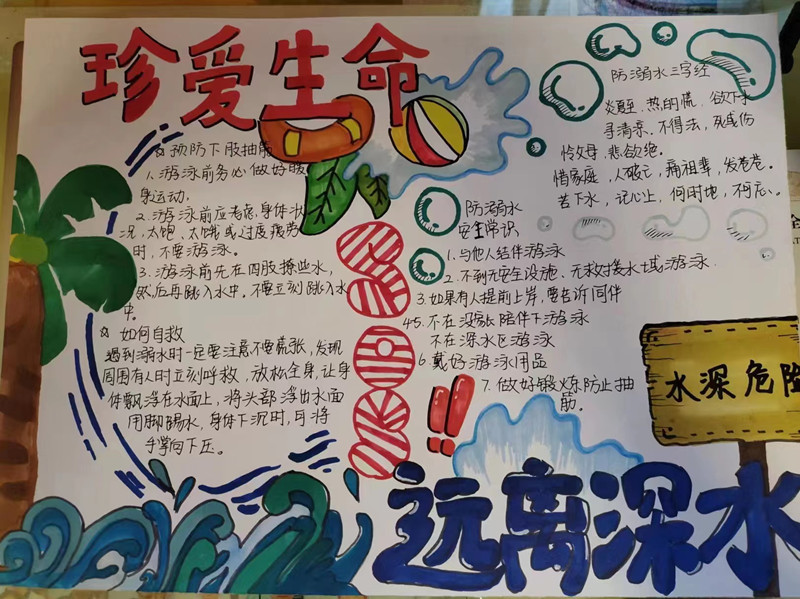 珍爱生命
预防下肢抽筋
1.游泳前务必做好暖
身运动.
2.游泳前应考虑身体状
况,太饱、太饿或过度疲劳
时,不要游泳。
3.游泳前先在四肢撩些水,
然后再跳入水中.不要立刻跳入水
中.
如何自救
遇到溺水时一定要注意,不要慌张,发现
周围有人时立刻呼救,放松全身,让身
体飘浮在水面上,将头部浮出水面
用脚踢水,身体下沉时,可将
手掌向下压。
SOS
!!
防溺水三字经
炎夏至,热的慌,欲下水
寻清凉、不得法,死或伤
怜父母,悲欲绝.
惜家庭,人破亡,痛祖辈,发苍苍。
苦下水,记心上,何时地,不可忘。
防溺水
安全常识
1.与他人结伴游泳
2.不到无安全设施、无救援水域游泳.
3.如果有人提前上岸,要告诉同伴
45.不在没家长陪伴下游泳
不在深水区游泳
6.戴好游泳用品
7.做好锻炼防止抽
筋。
水深危险
远离深水